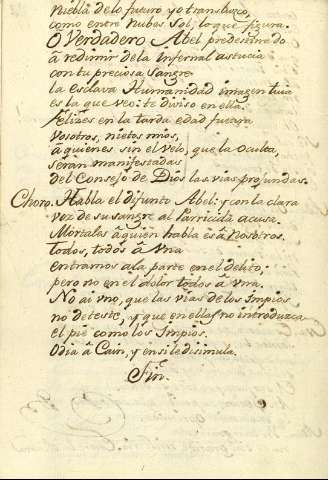 niebla de lo futuro yo transluzco,
como entre nubes Sol, lo que figura.
O Verdadero Abel predestinado
â redimir de la infernal astucia
con tu preciosa Sangre
la esclava Humanidad imagen tuia
es la que veo: te diviso en ella.
Felizes en la tarda edad futura
Vosotros, nietos mios,
â quienes sin el velo, que la oculta,
serân manifestadas
del Consejo de Dios las vias profundas.
Choro. Habla el difunto Abel: y con la clara
voz de su sangre al Parricida acusa.
Mortales â quièn habla es â Nosotros.
Todos, todos â vna
entramos a la parte en el delito;
pero no en el dolor todos â vna.
No ai vno, que las vias de los Impios
no deteste, y que en ellas no introduzca
el piè como los Impios.
Odia â Cain, y en sì le disimula.
Fin.